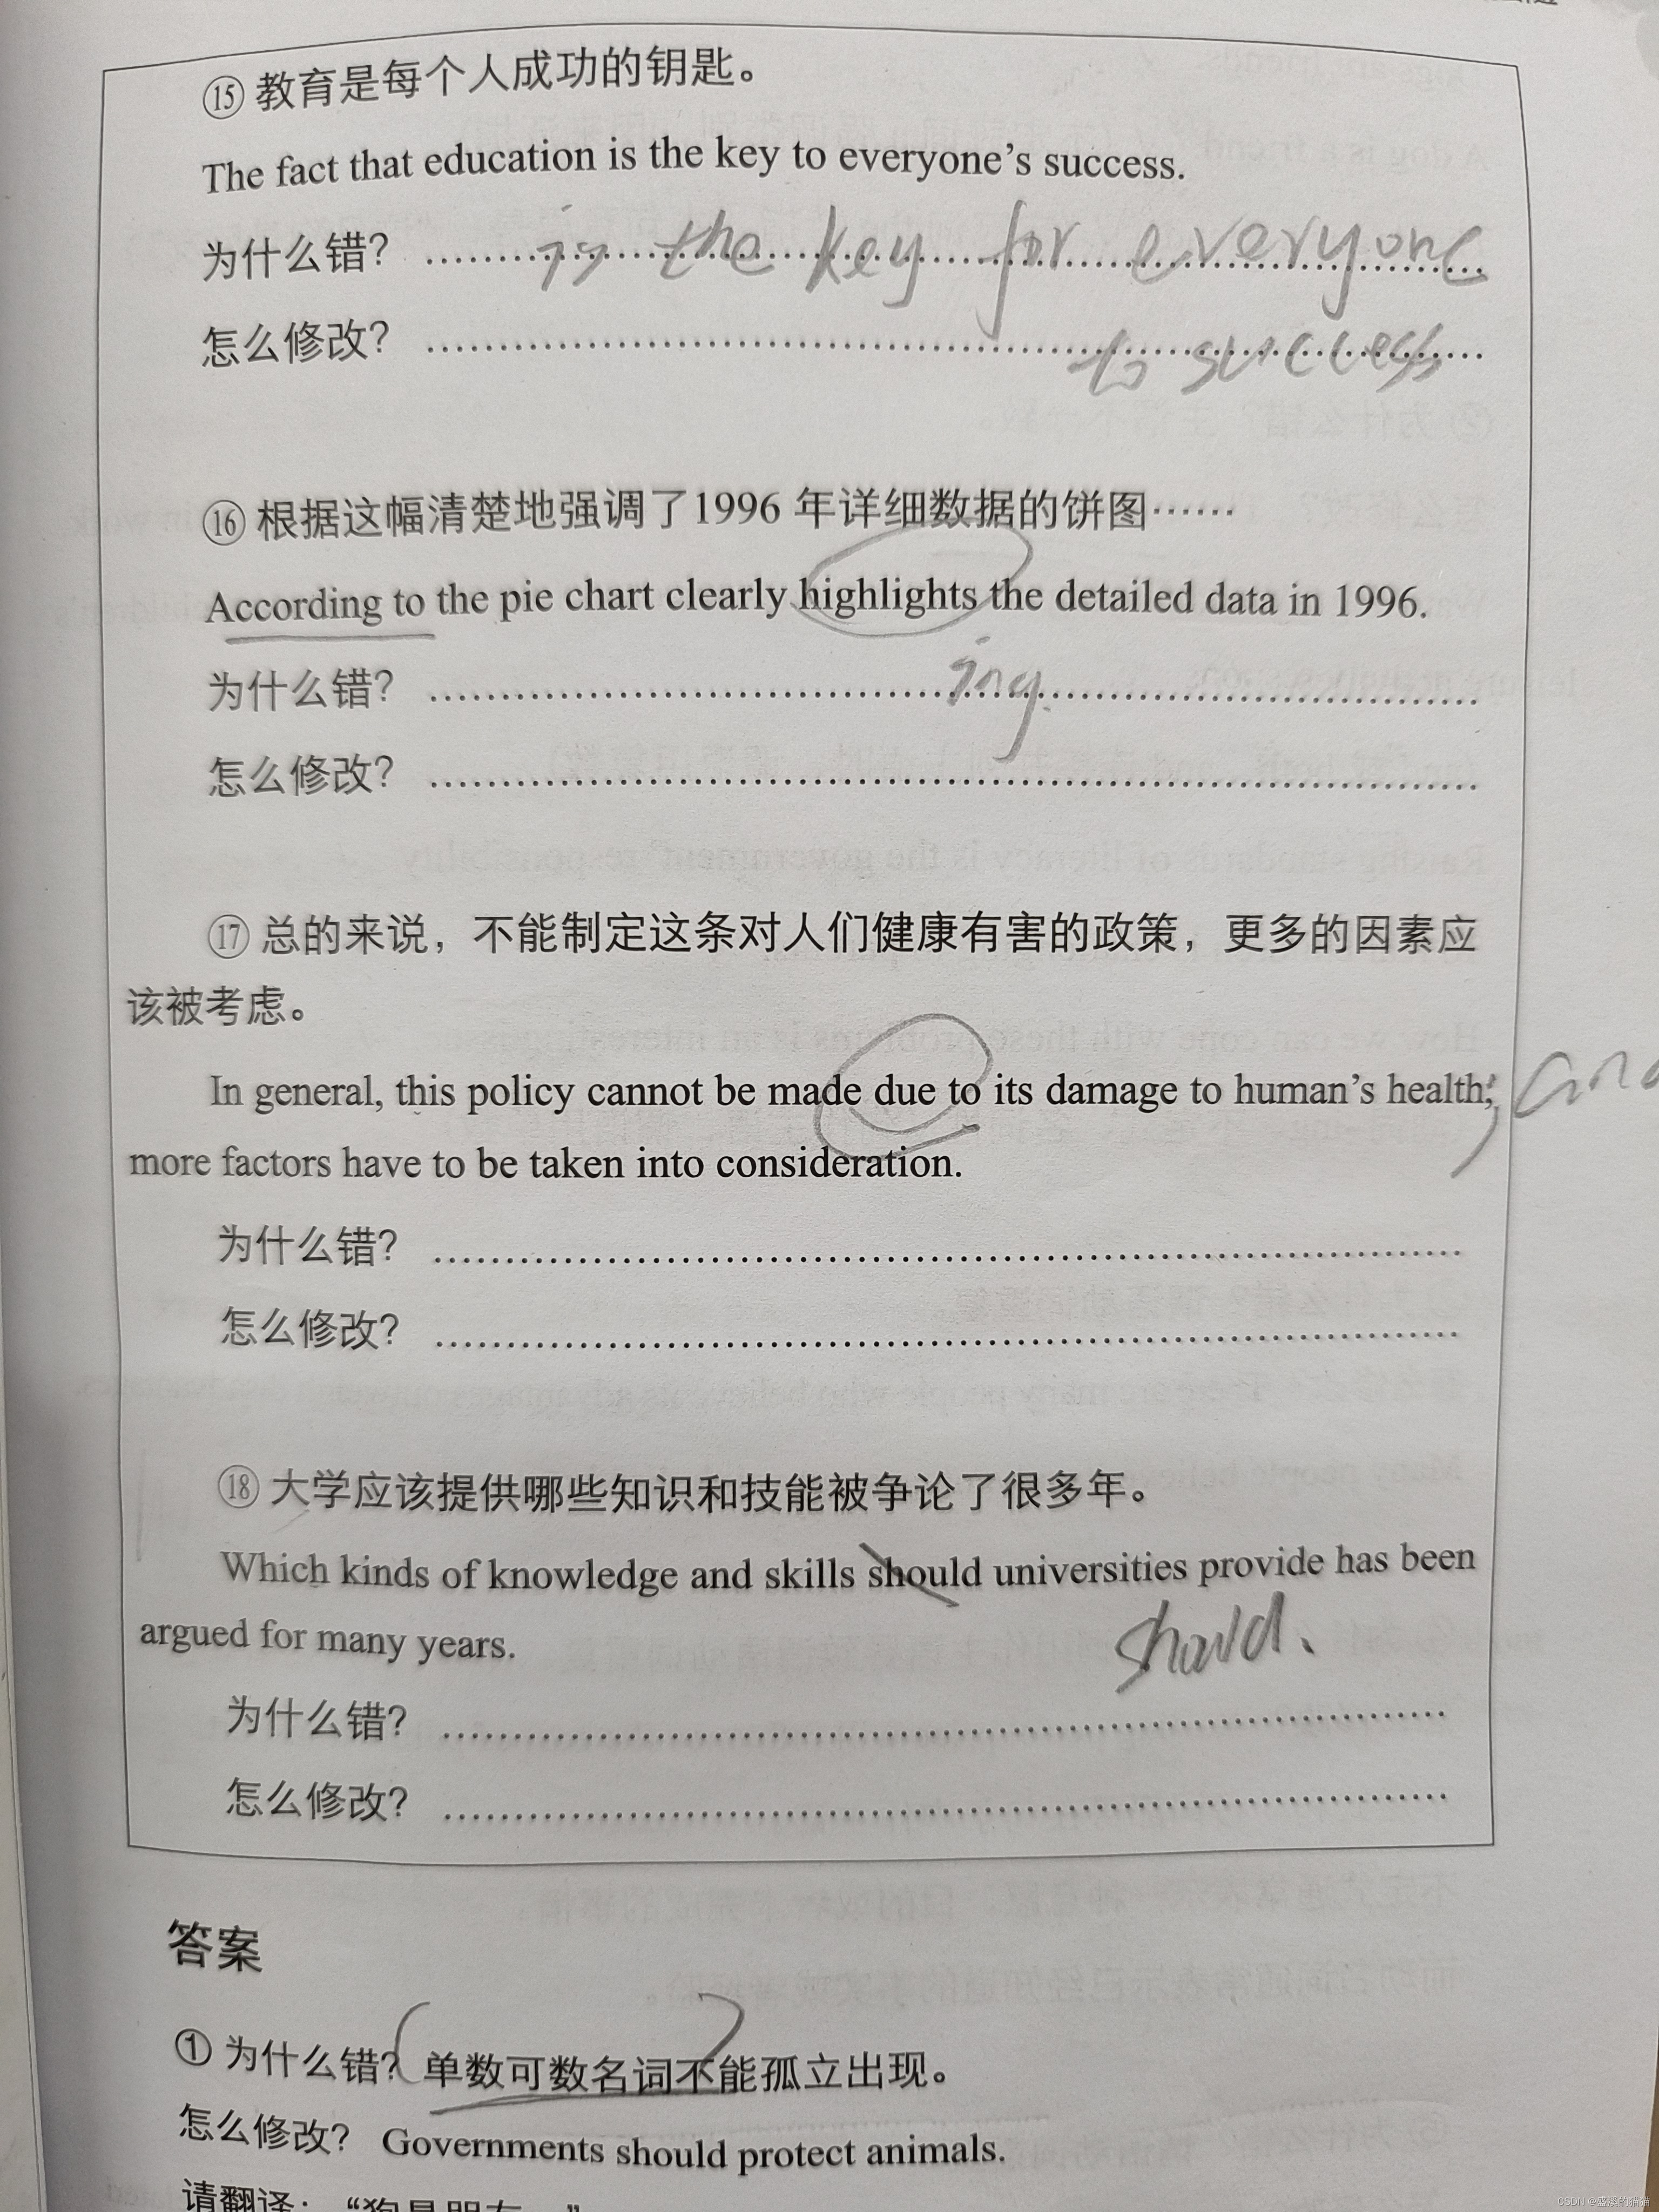 ⑮ 教育是每个人成功的钥匙。
The fact that education is the key to everyone's success.
为什么错？ is the key for everyone
怎么修改？ to success
⑯ 根据这幅清楚地强调了1996 年详细数据的饼图……
According to the pie chart clearly highlights the detailed data in 1996.
为什么错？ ing
怎么修改？
⑰ 总的来说，不能制定这条对人们健康有害的政策，更多的因素应
该被考虑。
In general, this policy cannot be made due to its damage to human's health, and
more factors have to be taken into consideration.
为什么错？
怎么修改？
⑱ 大学应该提供哪些知识和技能被争论了很多年。
Which kinds of knowledge and skills should universities provide has been
argued for many years. should
为什么错？
怎么修改？
答案
① 为什么错？ 单数可数名词不能孤立出现。
怎么修改？ Governments should protect animals.
请翻译：